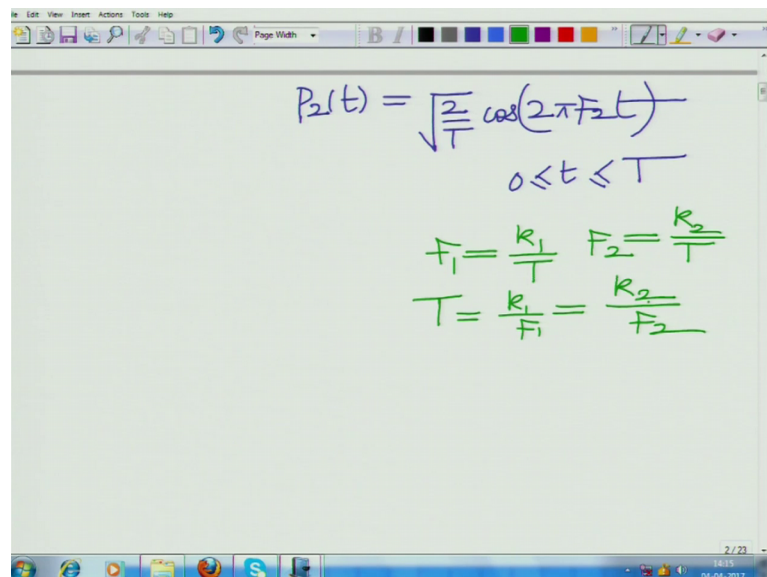 le Edit View Insert Actions Tools Help
Page Width
B I
P₂(t) = √(2/T) cos(2πF₂t)
0 ≤ t ≤ T
F₁ = k₁/T F₂ = k₂/T
T = k₁/F₁ = k₂/F₂
2 / 23
14:15
04-04-2017